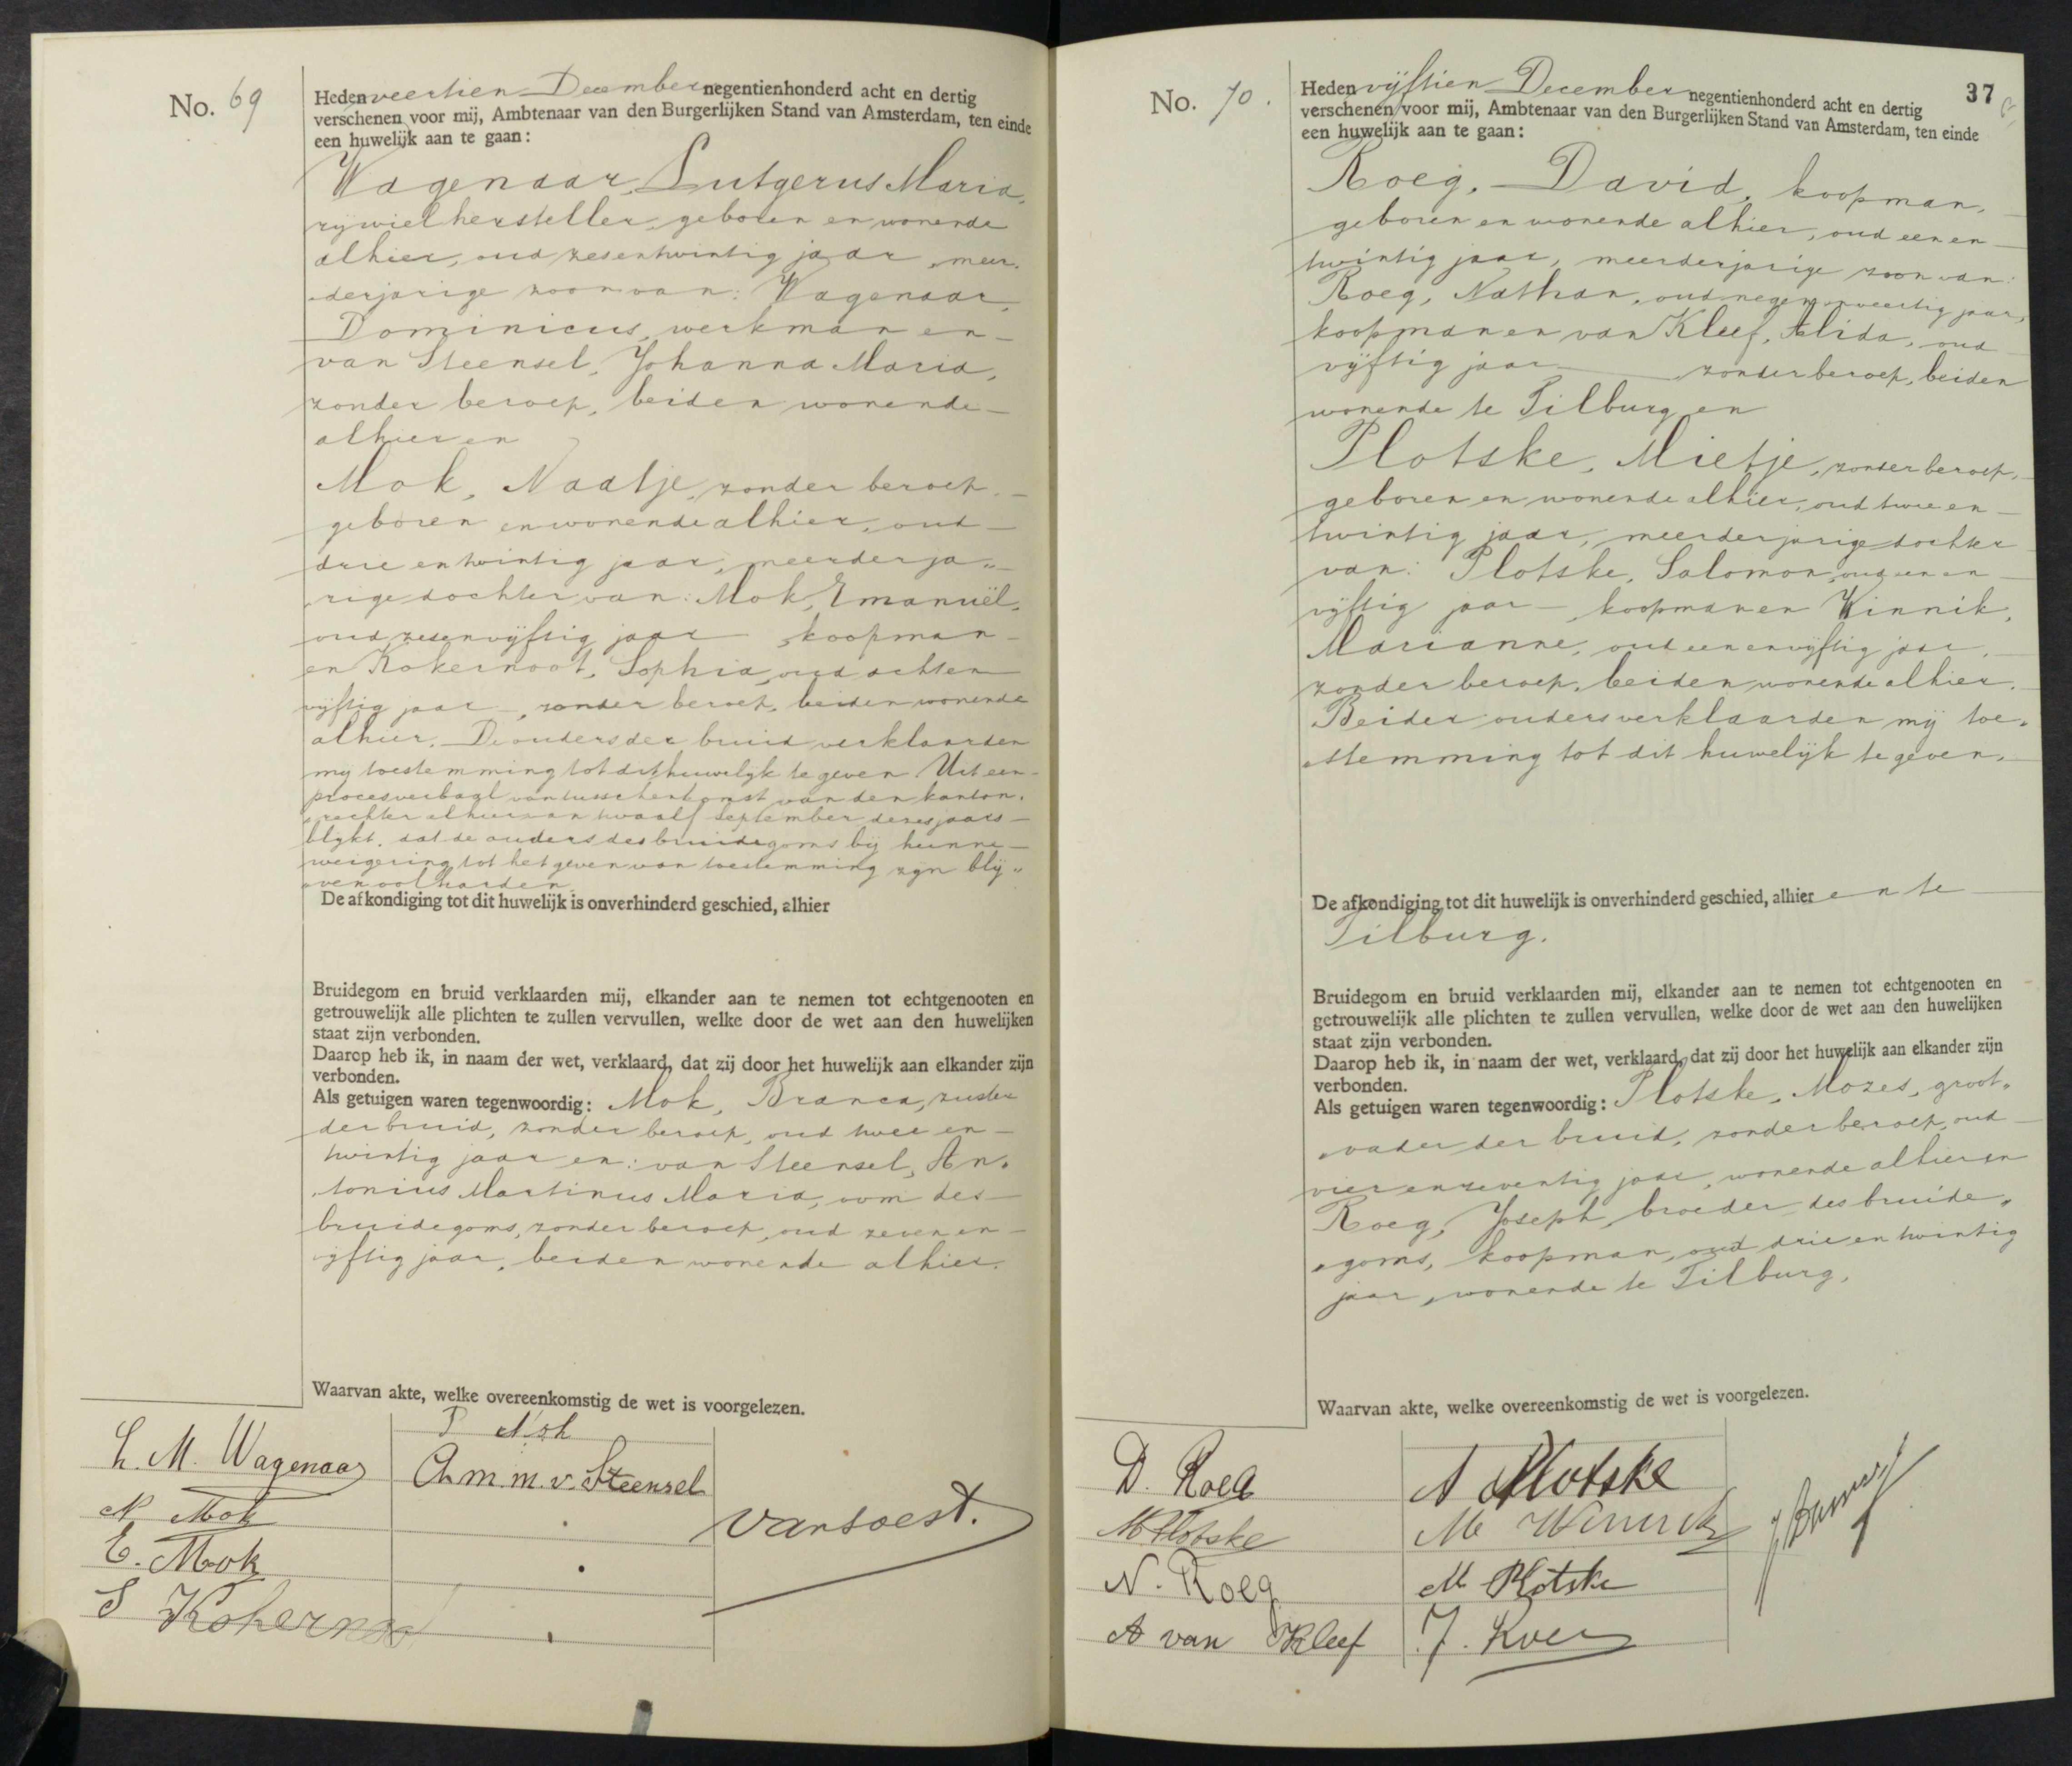 No. 69
Heden veertien December negentienhonderd acht en dertig
verschenen voor mij, Ambtenaar van den Burgerlijken Stand van Amsterdam, ten einde
een huwelijk aan te gaan:
Wagenaar, Lutgerus Maria,
rijwielhersteller, geboren en wonende
alhier, oud zesentwintig jaar, meer„
„derjarige zoon van: Wagenaar,
Dominicus, werkman en
van Steensel, Johanna Maria,
zonder beroep, beiden wonende
alhier en
Mok, Naatje, zonder beroep,
geboren en wonende alhier, oud
drie en twintig jaar, meerderja„
„rige dochter van: Mok, Emanuël,
oud zesenvijftig jaar, koopman
en Kokernoot, Sophia, oud achten
vijftig jaar, zonder beroep, beiden wonende
alhier. De ouders der bruid verklaarden
mij toestemming tot dit huwelijk te geven. Uit een
procesverbaal van tusschenkomst van den kanton„
„rechter alhier van twaalf September dezes jaars
blijkt, dat de ouders des bruidegoms bij hunne
weigering tot het geven van toestemming zijn blij„
„ven volharden.
De afkondiging tot dit huwelijk is onverhinderd geschied, alhier
Bruidegom en bruid verklaarden mij, elkander aan te nemen tot echtgenooten en
getrouwelijk alle plichten te zullen vervullen, welke door de wet aan den huwelijken
staat zijn verbonden.
Daarop heb ik, in naam der wet, verklaard, dat zij door het huwelijk aan elkander zijn
verbonden.
Als getuigen waren tegenwoordig: Mok, Branca, zuster
der bruid, zonder beroep, oud twee en
twintig jaar en: van Steensel, An„
„tonius Martinus Maria, oom des
bruidegoms, zonder beroep, oud zeven en
vijftig jaar, beiden wonende alhier.
Waarvan akte, welke overeenkomstig de wet is voorgelezen.
L. M. Wagenaar
N Mok
E. Mok
S Kokernoot
Mok
A. m. m. v. Steensel
van Soest.
No. 70.
37
Heden vijftien December negentienhonderd acht en dertig
verschenen voor mij, Ambtenaar van den Burgerlijken Stand van Amsterdam, ten einde
een huwelijk aan te gaan:
Roeg, David, koopman,
geboren en wonende alhier, oud een en
twintig jaar, meerderjarige zoon van:
Roeg, Nathan, oud negen en veertig jaar,
koopman en van Kleef, Alida, oud
vijftig jaar zonder beroep, beiden
wonende te Tilburg en
Plotske, Mietje, zonder beroep,
geboren en wonende alhier, oud twee en
twintig jaar, meerderjarige dochter
van: Plotske, Salomon, oud een en
vijftig jaar koopman en Winnik,
Marianne, oud een en vijftig jaar,
zonder beroep, beiden wonende alhier.
Beider ouders verklaarden mij toe„
„stemming tot dit huwelijk te geven.
De afkondiging tot dit huwelijk is onverhinderd geschied, alhier en te
Tilburg.
Bruidegom en bruid verklaarden mij, elkander aan te nemen tot echtgenooten en
getrouwelijk alle plichten te zullen vervullen, welke door de wet aan den huwelijken
staat zijn verbonden.
Daarop heb ik, in naam der wet, verklaard, dat zij door het huwelijk aan elkander zijn
verbonden.
Als getuigen waren tegenwoordig: Plotske, Mozes, groot„
„vader der bruid, zonder beroep, oud
vier en zeventig jaar, wonende alhier en
Roeg, Joseph, broeder des bruide„
„goms, koopman, oud drie en twintig
jaar, wonende te Tilburg.
Waarvan akte, welke overeenkomstig de wet is voorgelezen.
D. Roeg
M Plotske
N. Roeg
A van Kleef
Plotske
M Winnik
M Plotske
J. Roeg